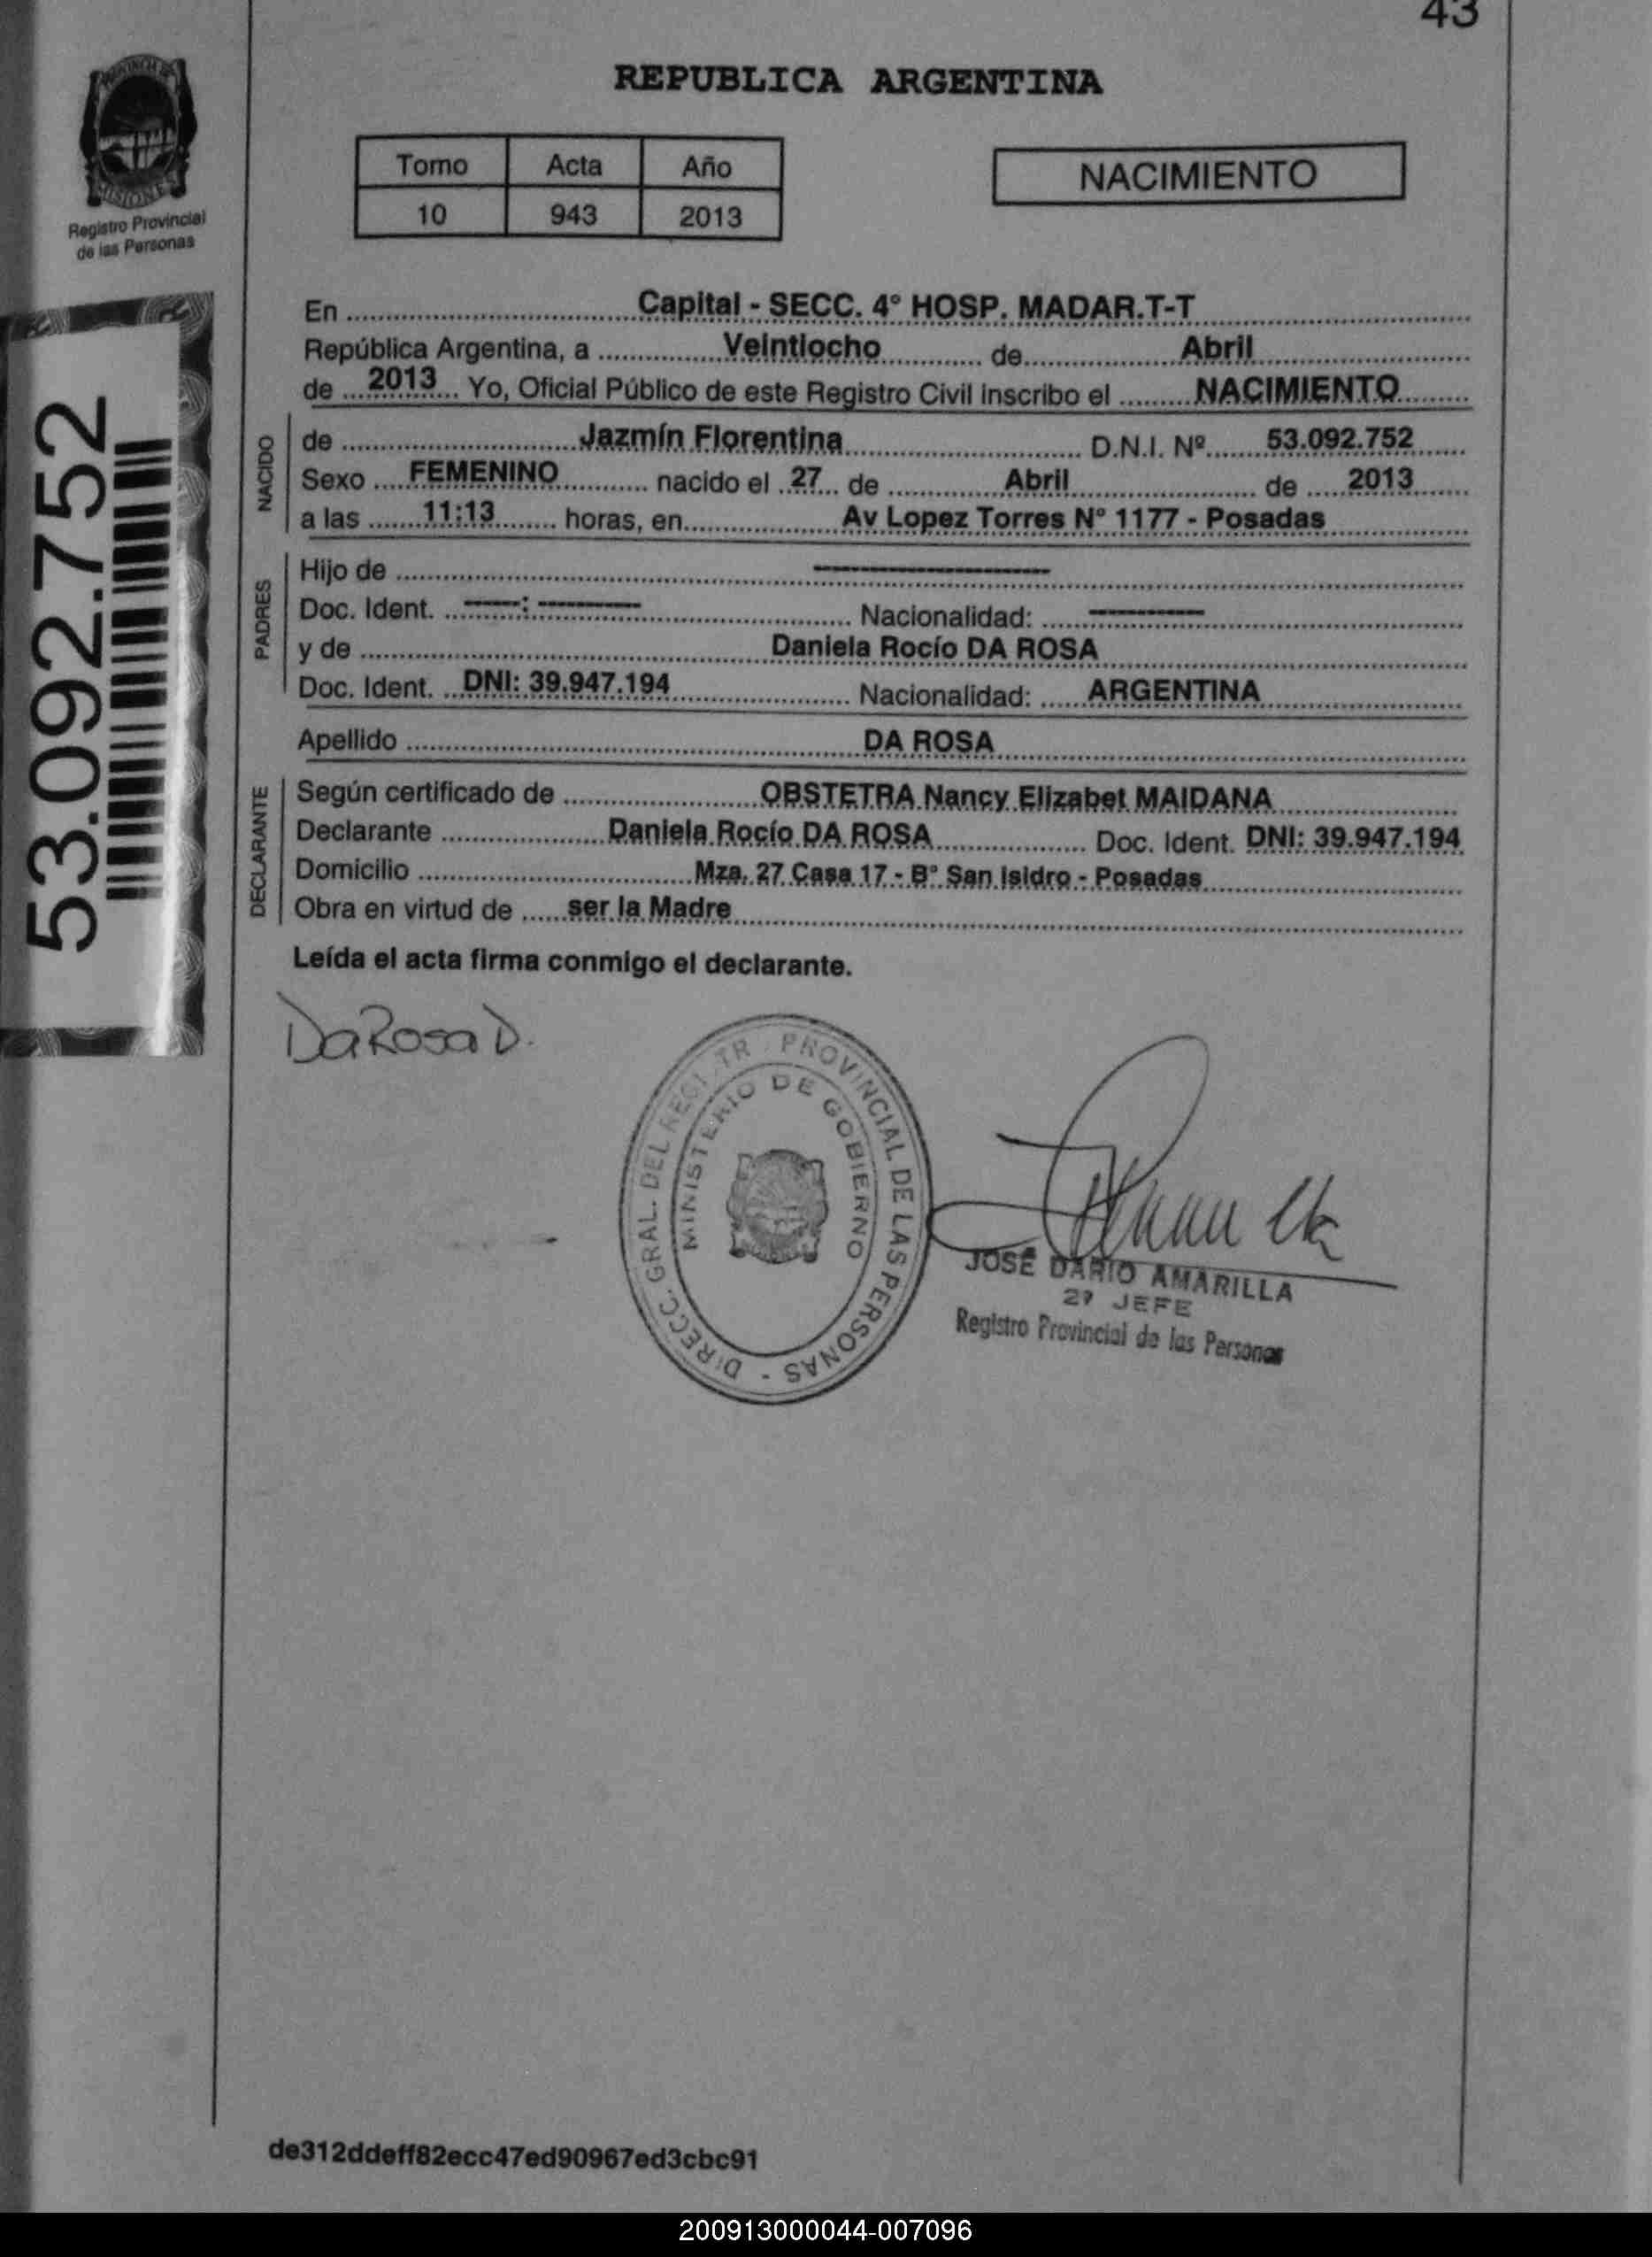 43
PROVINCIA DE
MISIONES
Registro Provincial
de las Personas
53.092.752
REPUBLICA ARGENTINA
Tomo Acta Año
10 943 2013
NACIMIENTO
En ........ Capital - SECC. 4° HOSP. MADAR.T-T ........
República Argentina, a ........ Veintiocho ........ de ........ Abril ........
de ... 2013 ... Yo, Oficial Público de este Registro Civil inscribo el ........ NACIMIENTO ........
NACIDO
de ........ Jazmín Florentina ........ D.N.I. Nº ........ 53.092.752 ........
Sexo .... FEMENINO ........ nacido el .. 27 ... de ........ Abril ........ de ..... 2013 ........
a las ....... 11:13 ........ horas, en ........ Av Lopez Torres N° 1177 - Posadas ........
PADRES
Hijo de ........ ---------- ........
Doc. Ident. ... ----:------- ........ Nacionalidad: ..... -------- ........
y de ........ Daniela Rocío DA ROSA ........
Doc. Ident. ... DNI: 39.947.194 ........ Nacionalidad: ...... ARGENTINA ........
Apellido ........ DA ROSA ........
DECLARANTE
Según certificado de ........ OBSTETRA Nancy Elizabet MAIDANA ........
Declarante ........ Daniela Rocío DA ROSA ........ Doc. Ident. DNI: 39.947.194
Domicilio ........ Mza. 27 Casa 17 - B° San Isidro - Posadas ........
Obra en virtud de ...... ser la Madre ........
Leída el acta firma conmigo el declarante.
DaRosa D.
DIRECC. GRAL. DEL REGISTR PROVINCIAL DE LAS PERSONAS -
MINISTERIO DE GOBIERNO
JOSÉ DARIO AMARILLA
2º JEFE
Registro Provincial de las Personas
de312ddeff82ecc47ed90967ed3cbc91
200913000044-007096